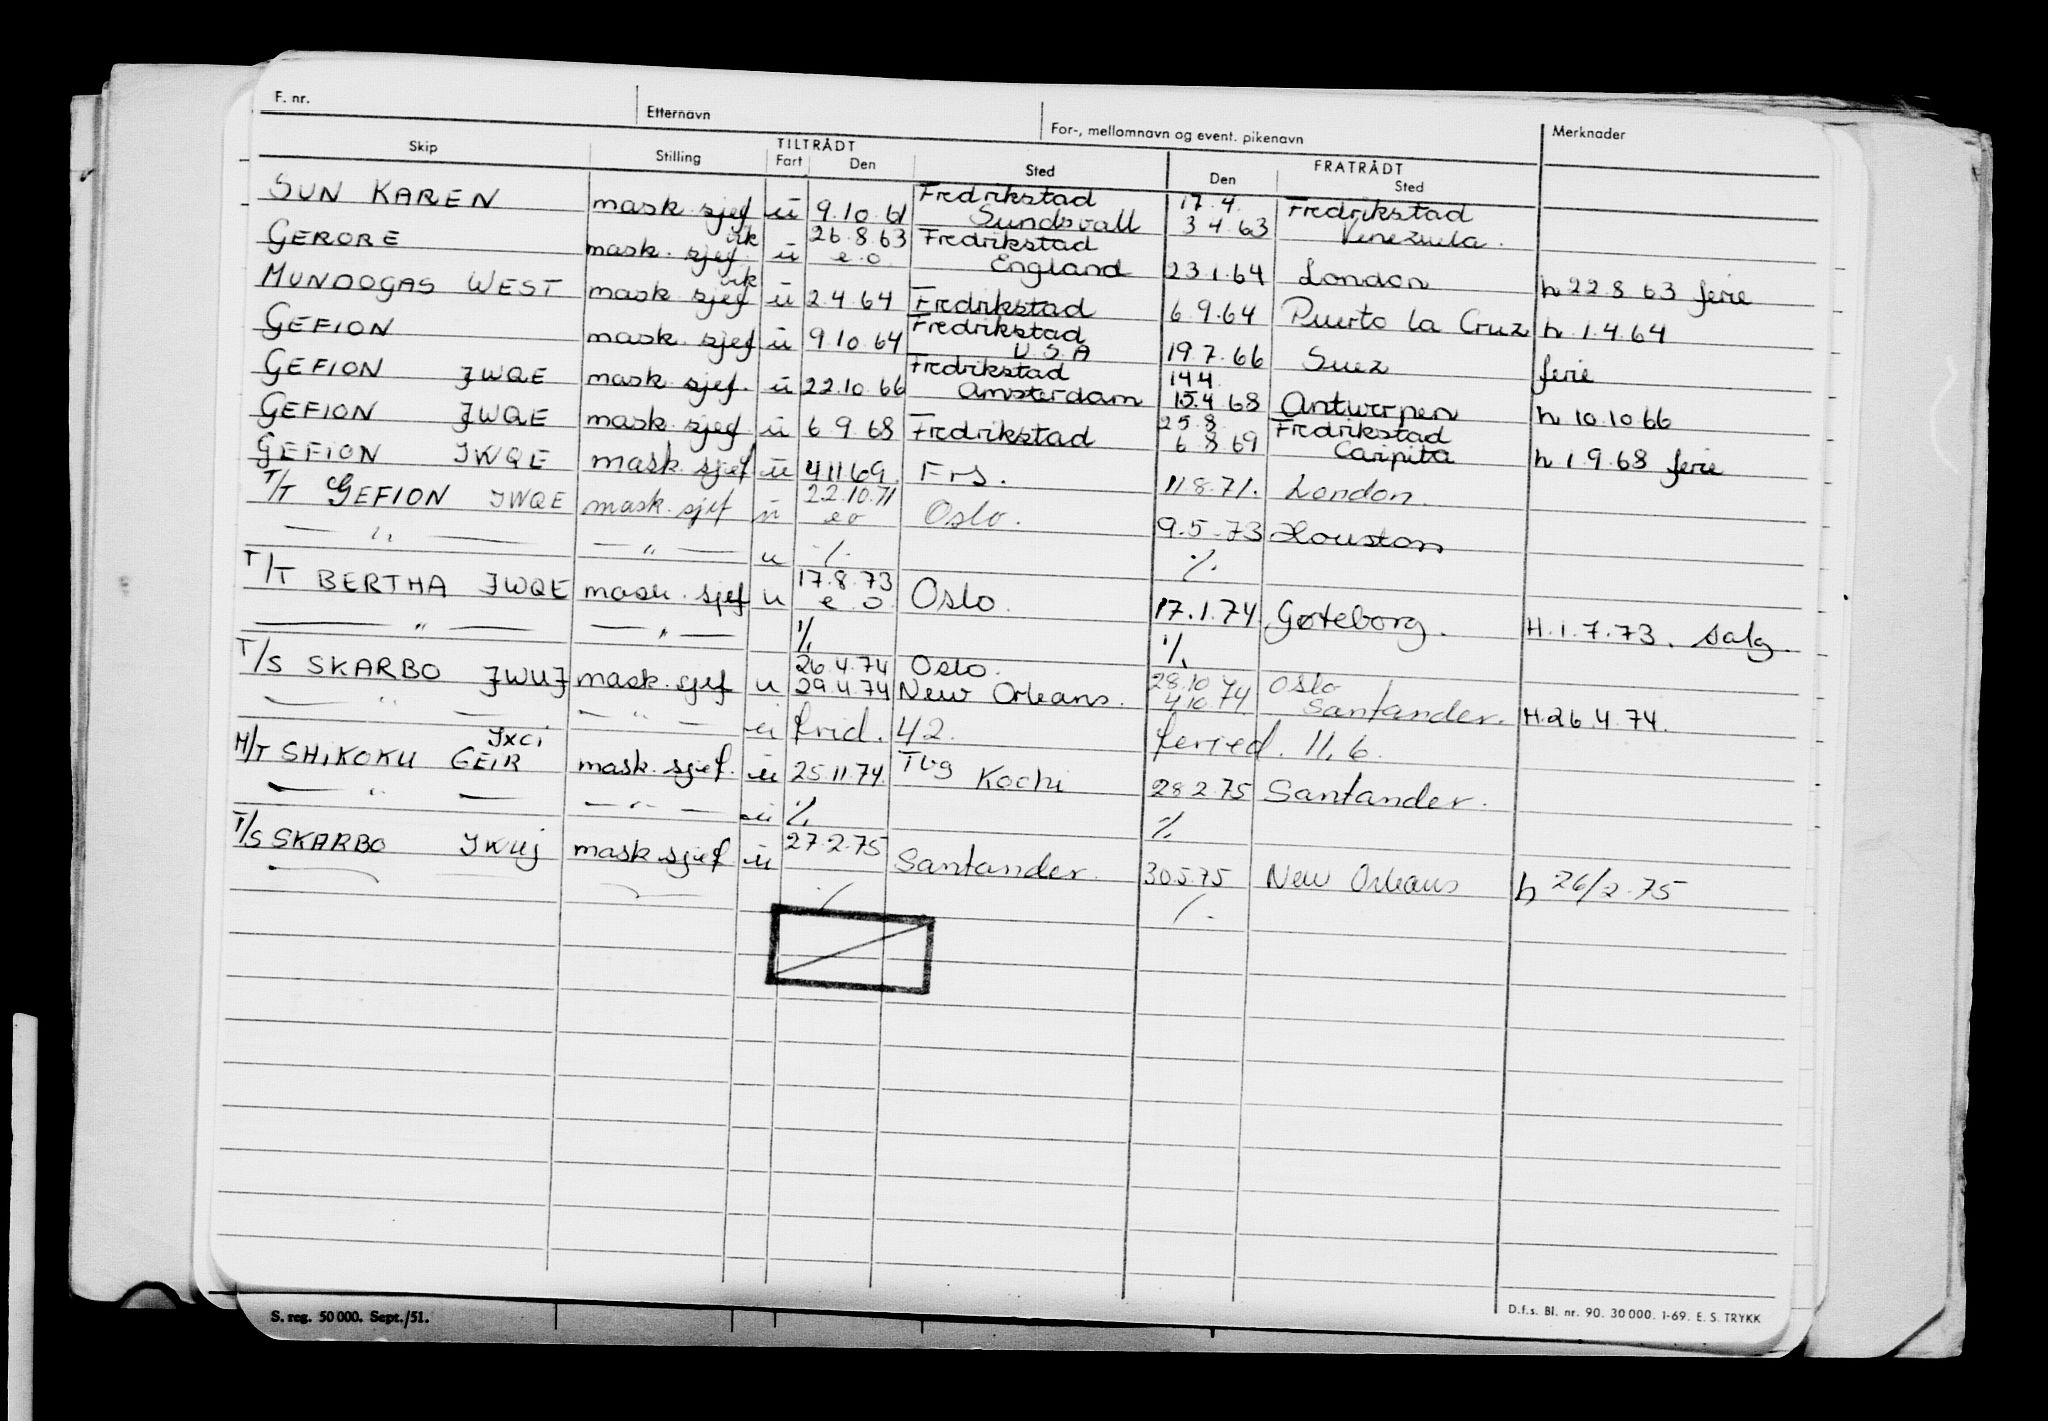 F. nr. Etternavn For-, mellomnavn og event. pikenavn Merknader
Skip Stilling TILTRÅDT Fart Den Sted FRATRÅDT Den Sted
SUN KAREN mask. sjef u 9.10.61 Fredrikstad Sundsvall 17.4. 3.4.63 Fredrikstad Venezuela.
GERORE mask. sjef vik u 26.8.63 e.o. Fredrikstad England 23.1.64 London h 22.8.63 ferie
MUNDOGAS WEST mask. sjef vik u 2.4.64 Fredrikstad 6.9.64 Puerto la Cruz h 1.4.64
GEFION mask. sjef u 9.10.64 Fredrikstad U.S.A 19.7.66 Suez ferie
GEFION JWQE mask. sjef. u 22.10.66 Fredrikstad Amsterdam 14.4. 15.4.68 Antwerpen h 10.10.66
GEFION JWQE mask. sjef. u 6.9.68 Fredrikstad 25.8. 6.8.69 Fredrikstad Caripito h 1.9.68 ferie
GEFION JWQE mask. sjef u 4.11.69. Frs. 11.8.71. London.
T/T GEFION JWQE mask. sjef u 22.10.71 eo Oslo. 9.5.73 Houston
— " — — " — u ./. ./.
T/T BERTHA JWQE mask. sjef u 17.8.73 e.o. Oslo. 17.1.74. Gøteborg. H.1.7.73. salg.
— " — — " — ./. ./.
T/S SKARBO JWUJ mask. sjef u 26.4.74 29.4.74 Oslo. New Orleans. 28.10.74 4.10.74 Oslo Santander. H.26.4.74.
— " — — " — u frid. 42. feried. 11,6.
M/T SHIKOKU GEIR JXCI mask. sjef. u 25.11.74. Tbg Kochi 28.2.75 Santander.
— " — — " — u ./. ./.
T/S SKARBO JWUJ mask. sjef u 27.2.75 Santander. 30.5.75 New Orleans h 26/2.75
./. ./.
S. reg. 50 000. Sept./51. D.f.s. Bl. nr. 90. 30 000. 1-69. E. S. TRYKK